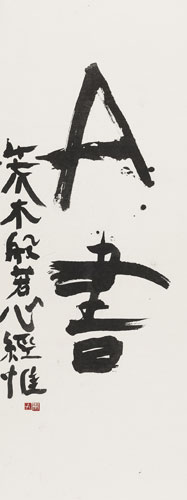 A書
荒木般若心經惟